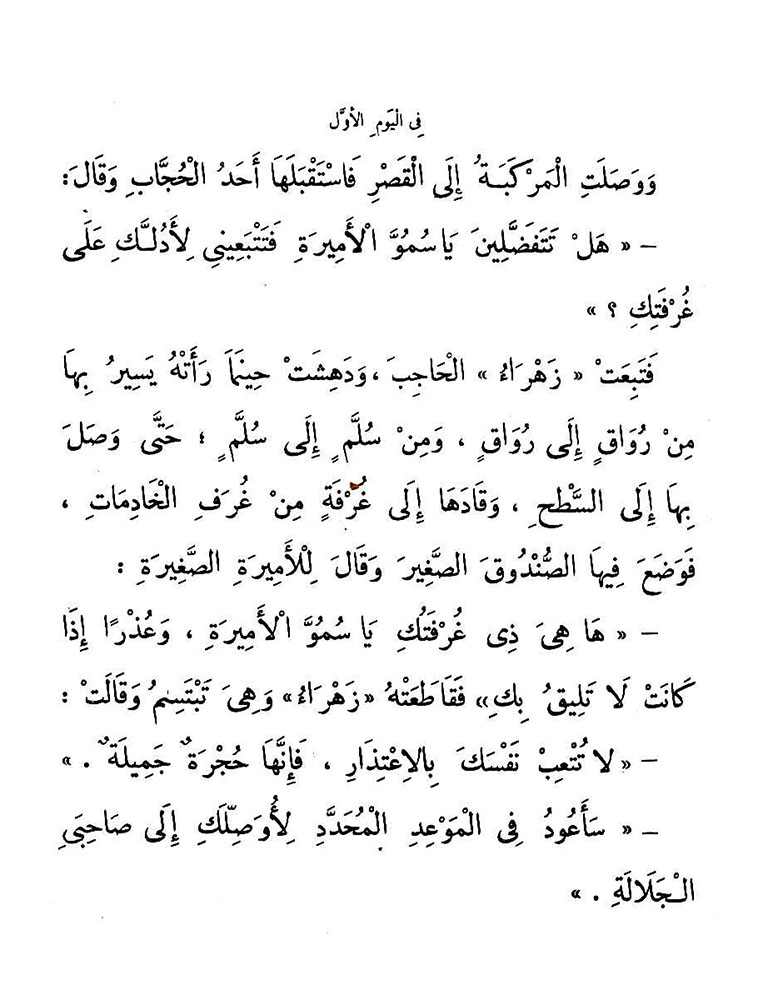 فِى الْيَوْمِ الْأَوَّل
وَوَصَلَتِ الْمَرْكَبَةُ إِلَى الْقَصْرِ فَاسْتَقْبَلَهَا أَحَدُ الْحُجَّابِ وَقَالَ:
– « هَلْ تَتَفَضَّلِينَ يَا سُمُوَّ الْأَمِيرَةِ فَتَتْبَعِينِى لِأَدُلَّكِ عَلَى
غُرْفَتِكِ ؟ »
فَتَبِعَتْ « زَهْرَاءُ » الْحَاجِبَ ، وَدَهِشَتْ حِينَمَا رَأَتْهُ يَسِيرُ بِهَا
مِنْ رُوَاقٍ إِلَى رُوَاقٍ ، وَمِنْ سُلَّمٍ إِلَى سُلَّمٍ ؛ حَتَّى وَصَلَ
بِهَا إِلَى السَّطْحِ ، وَقَادَهَا إِلَى غُرْفَةٍ مِنْ غُرَفِ الْخَادِمَاتِ ،
فَوَضَعَ فِيهَا الصُّنْدُوقَ الصَّغِيرَ وَقَالَ لِلْأَمِيرَةِ الصَّغِيرَةِ :
– « هَا هِىَ ذِى غُرْفَتُكِ يَا سُمُوَّ الْأَمِيرَةِ ، وَعُذْرًا إِذَا
كَانَتْ لَا تَلِيقُ بِكِ » فَقَاطَعَتْهُ « زَهْرَاءُ » وَهِىَ تَبْتَسِمُ وَقَالَتْ :
– « لَا تُتْعِبْ نَفْسَكَ بِالِاعْتِذَارِ ، فَإِنَّهَا حُجْرَةٌ جَمِيلَةٌ . »
– « سَأَعُودُ فِى الْمَوْعِدِ الْمُحَدَّدِ لِأُوَصِّلَكِ إِلَى صَاحِبَىِ
الْجَلَالَةِ . »